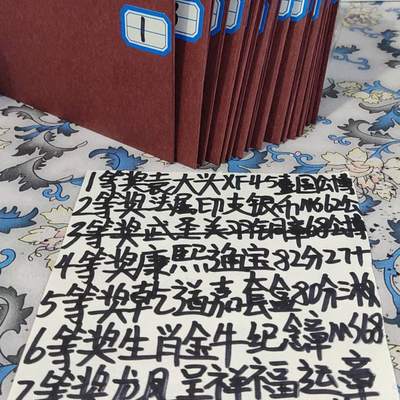 1
1等奖袁大头XF45壹国公博
2等奖法属印支银币MS62公
3等奖武圣关公铜章68公博
4等奖康熙通宝82分27+
5等奖乾道嘉套盒80分三枚
6等奖生肖金牛纪念章MS68
7等奖龙凤呈祥福运章